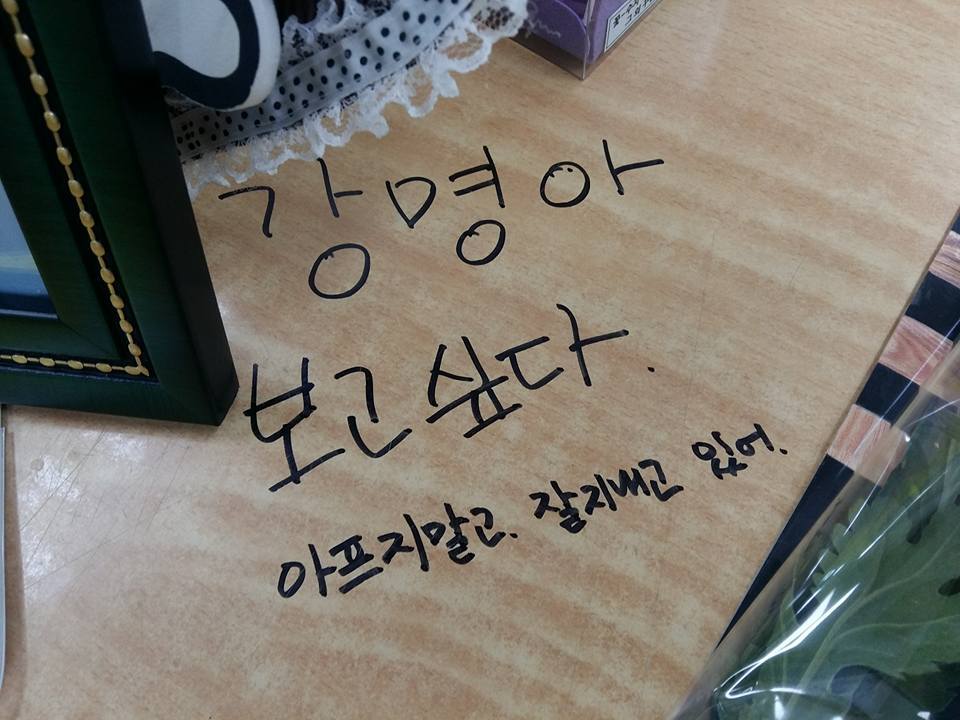 강명아
보고싶다.
아프지말고. 잘지내고 있어.